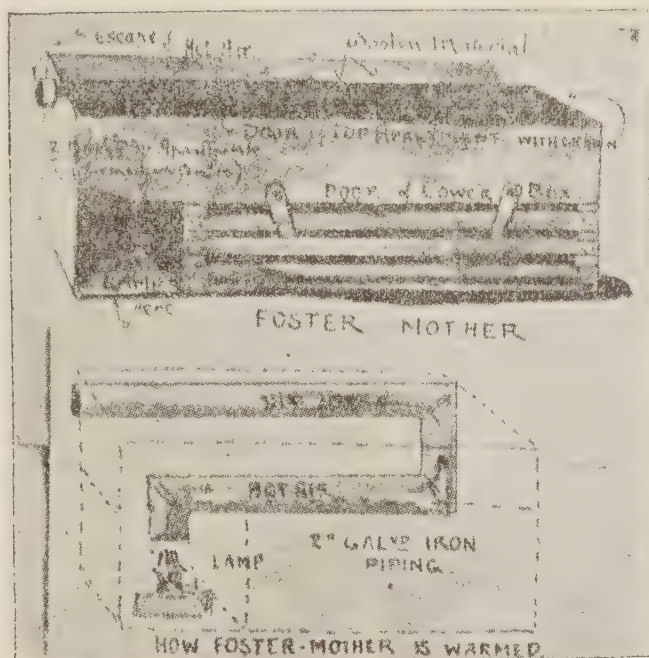 escape of Hot Air. Woolen Material
Door of Top Apartment withdrawn
Door of Lower Box
Lamp
Here
FOSTER MOTHER
HOT AIR
HOT AIR
LAMP
2" GALVD IRON
PIPING.
HOW FOSTER-MOTHER IS WARMED